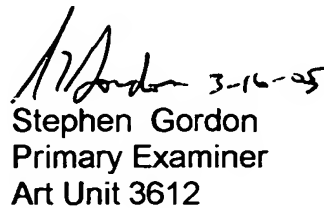 S Gordon 3-16-05
Stephen Gordon
Primary Examiner
Art Unit 3612